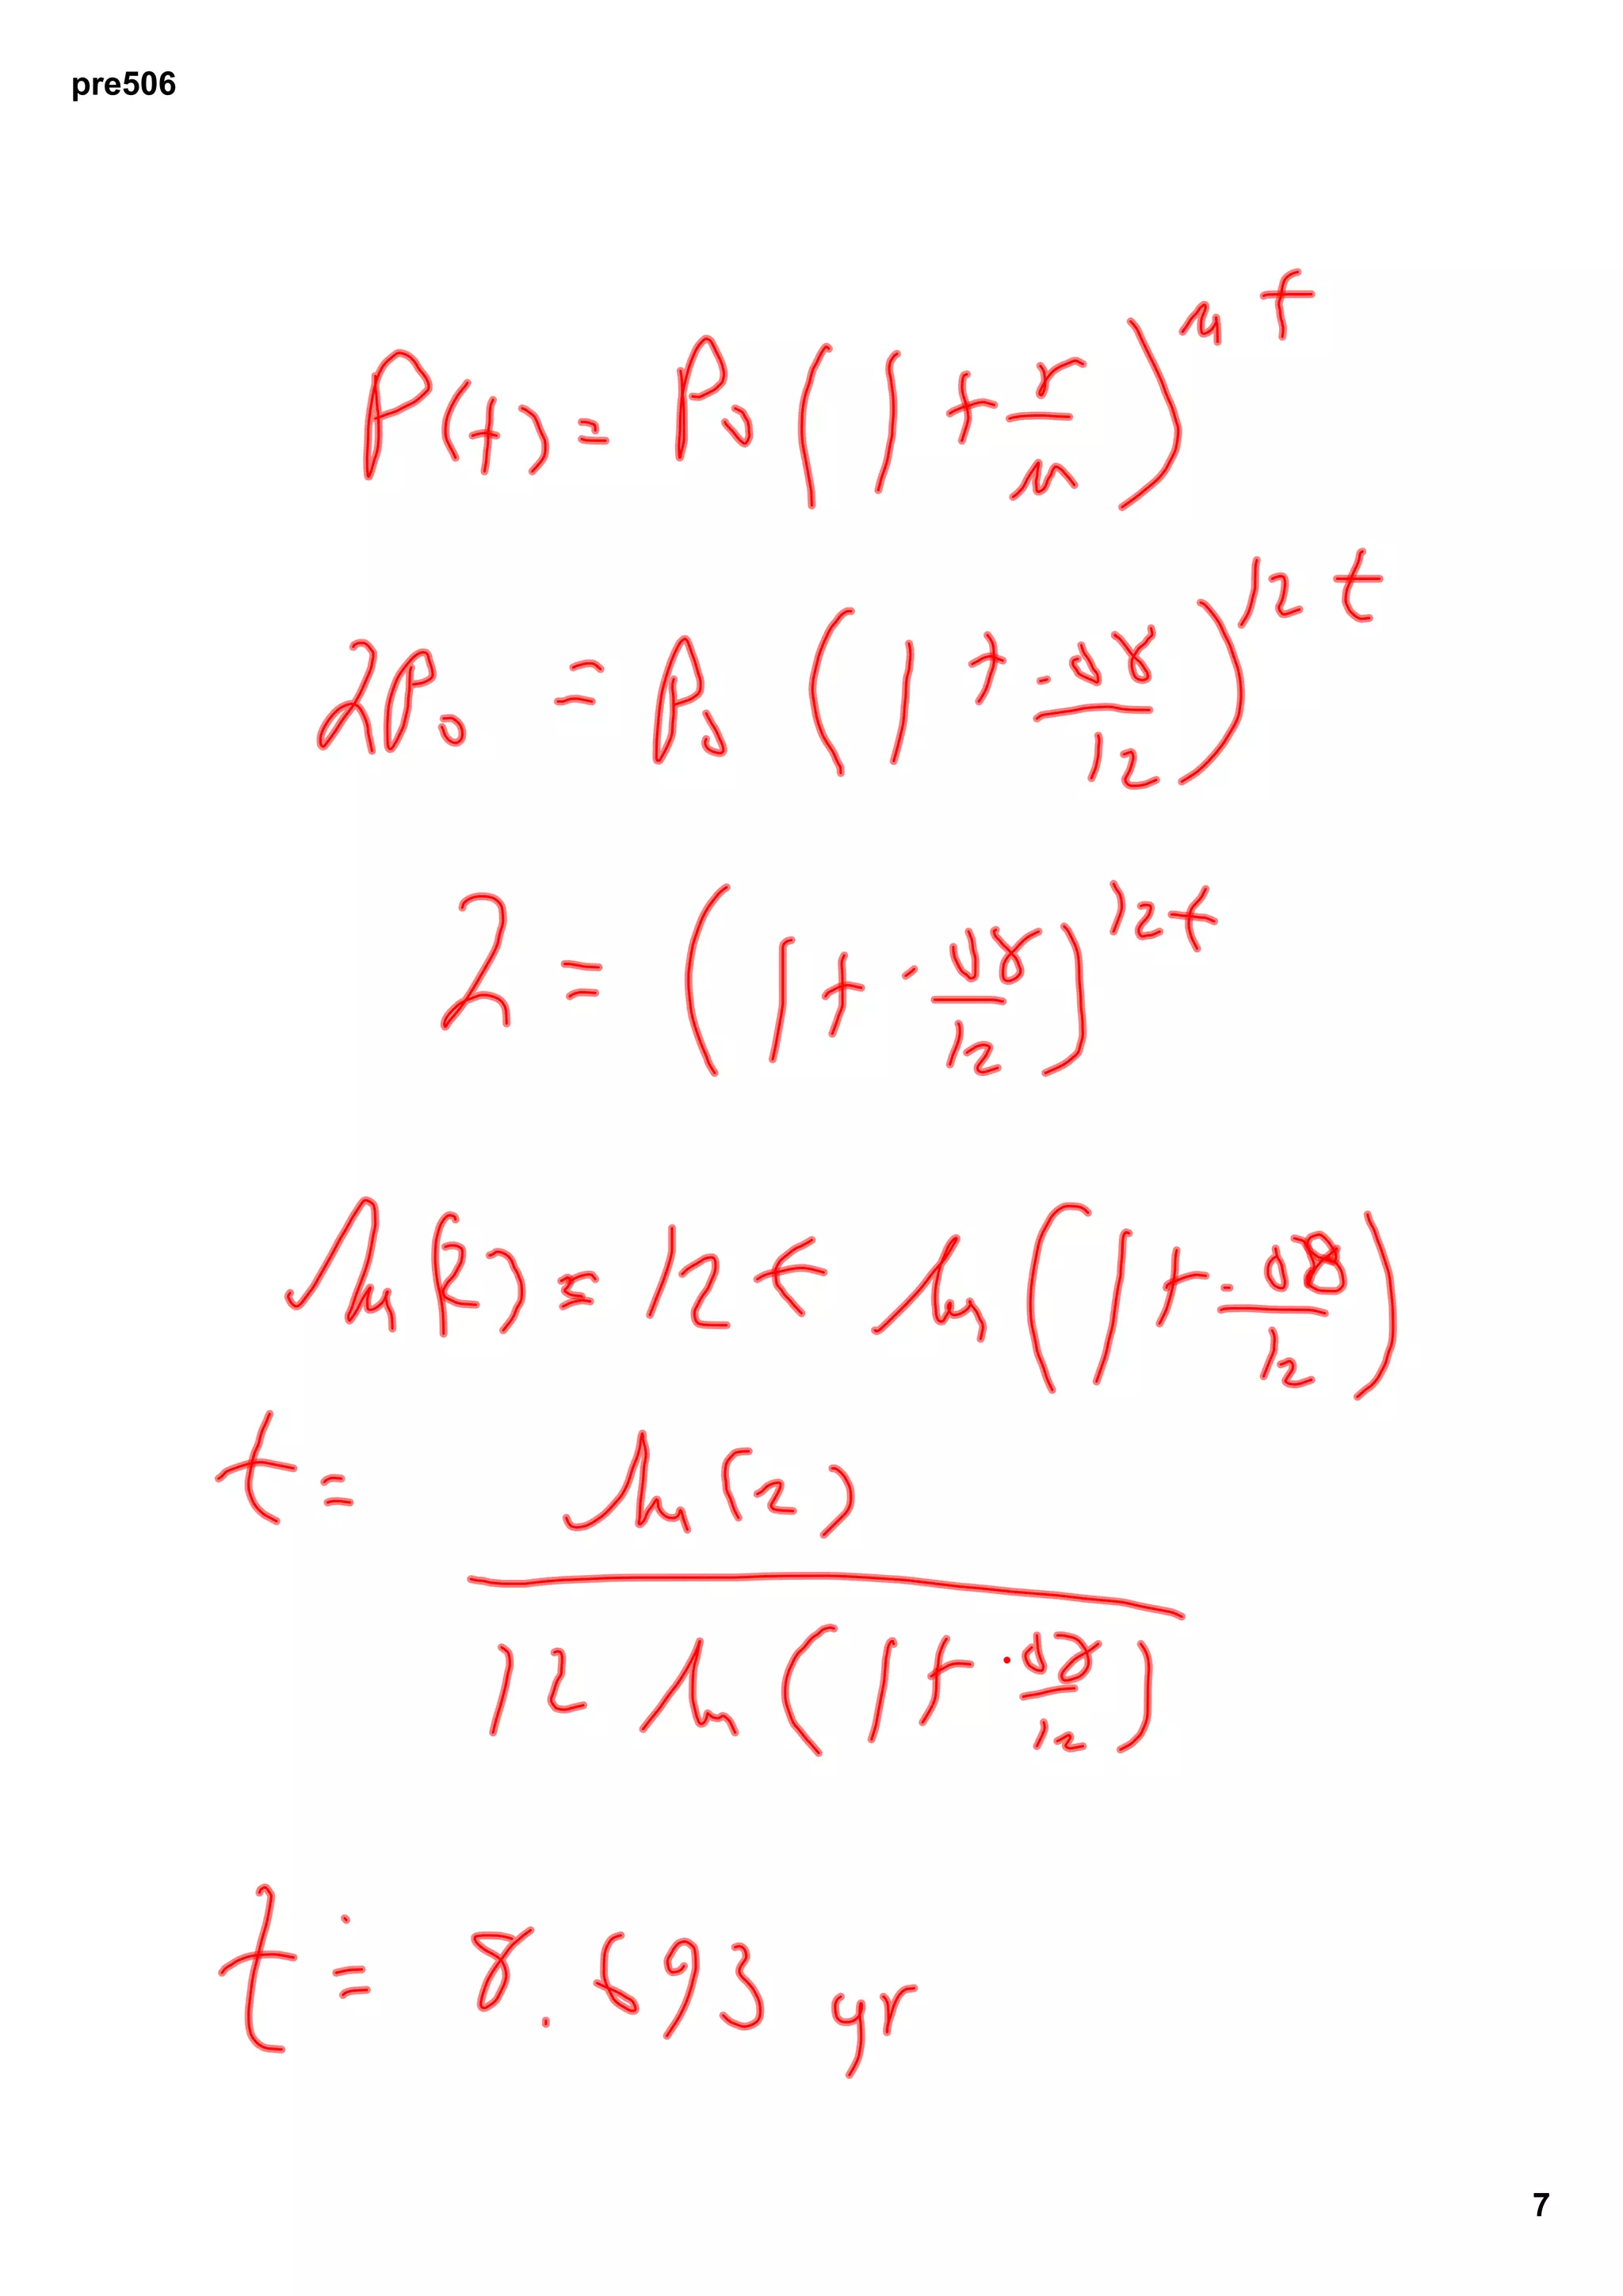 pre506
P(t) = P₀ (1 + r/n)^nt
2P₀ = P₀ (1 + .08/12)^12t
2 = (1 + .08/12)^12t
ln(2) = 12t ln(1 + .08/12)
t = ln(2) / 12 ln(1 + .08/12)
t ≐ 8.693 yr
7